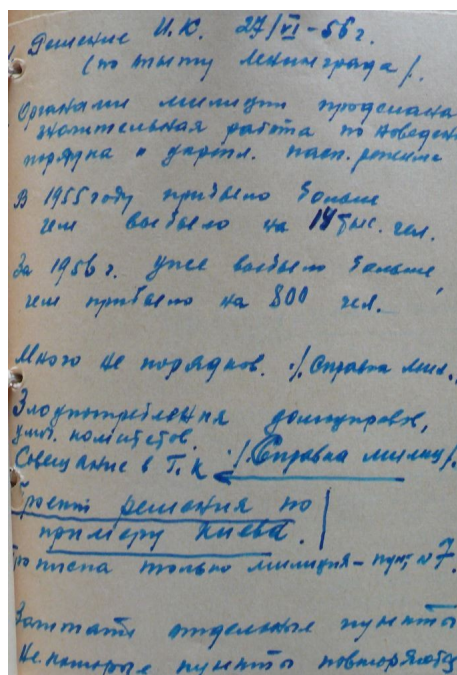 Решение И.К. 27/VI-56 г.
(по опыту Ленинграда/.
Органами милиции проделана
значительная работа по наведен
порядка и укрепл. пасп. режима
В 1955 году прибыло больше
чем выбыло на 14 тыс. чел.
За 1956 г. уже выбыло больше,
чем прибыло на 800 чел.
Много не порядков. /. Справка мил./.
Злоупотребления домоуправов,
комитетов.
Совещание в Г.К /Справка милиц/.
Проект решения по
примеру Киева.
Прописка только милиция - пункт № 7.
Зачитать отдельные пункты
Некоторые пункты повторяются